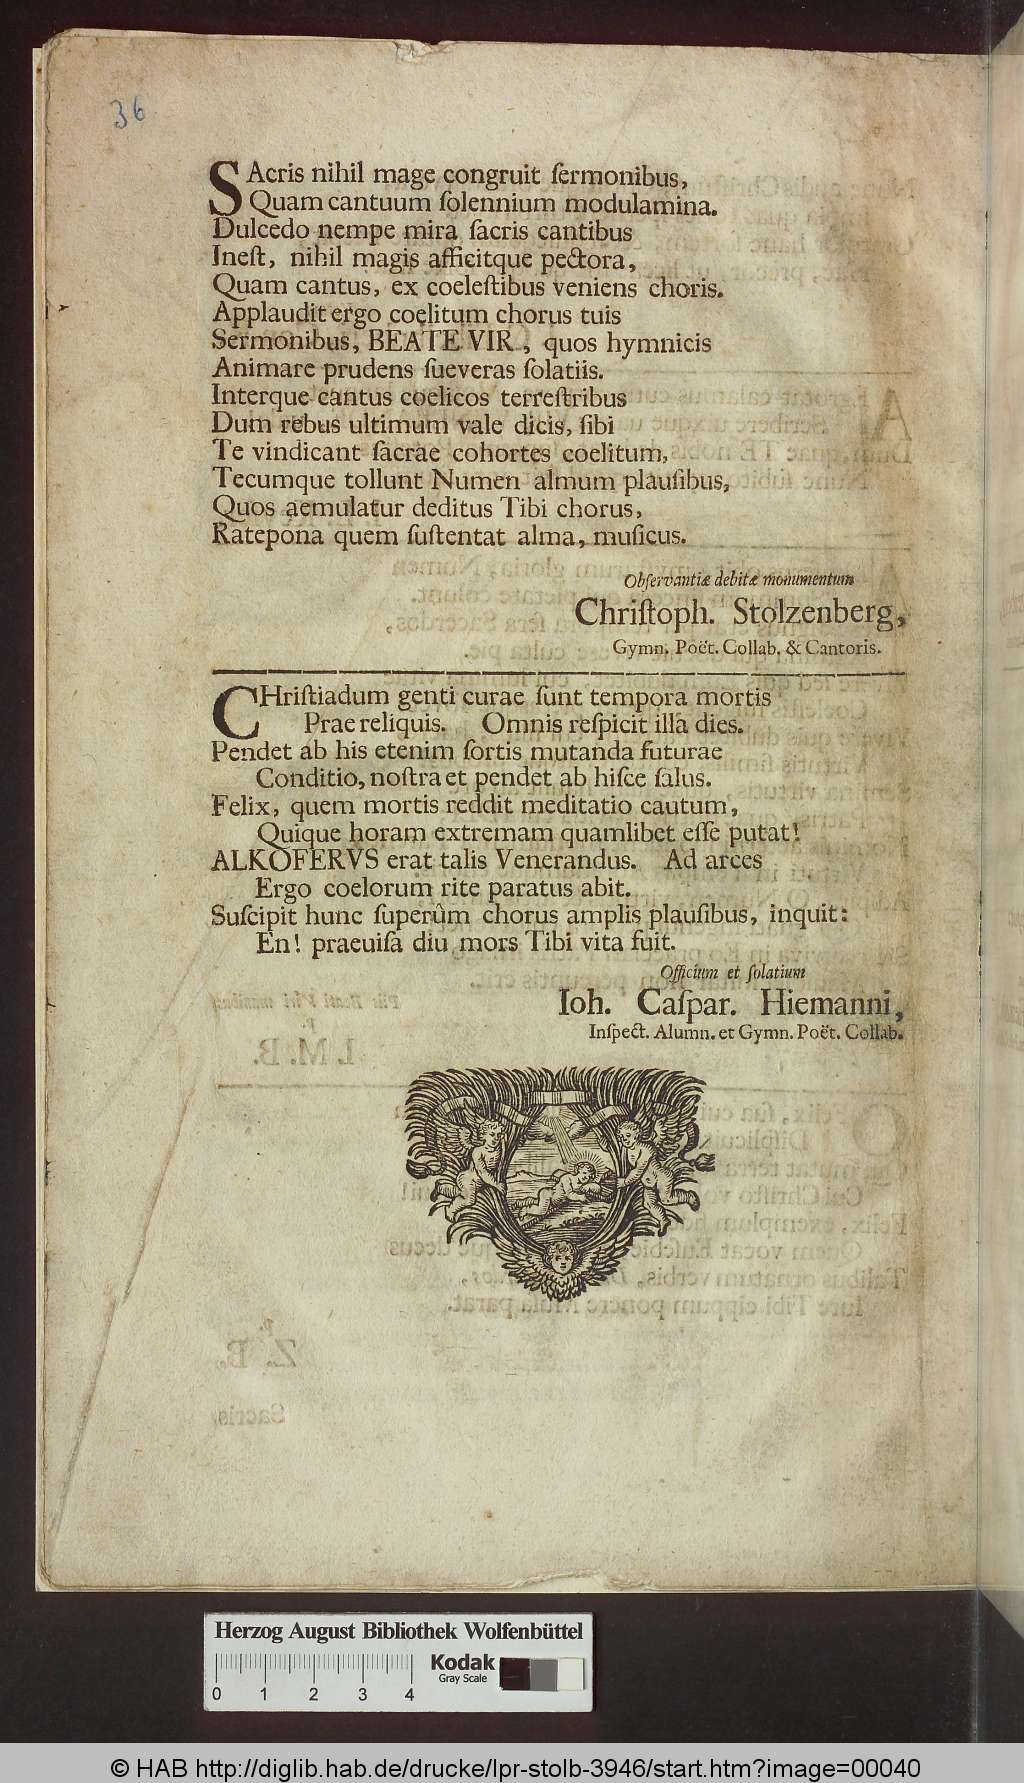 36
SAcris nihil mage congruit ſermonibus,
Quam cantuum ſolennium modulamina.
Dulcedo nempe mira ſacris cantibus
Ineſt, nihil magis afficitque pectora,
Quam cantus, ex coeleſtibus veniens choris.
Applaudit ergo coelitum chorus tuis
Sermonibus, BEATE VIR, quos hymnicis
Animare prudens ſueveras ſolatiis.
Interque cantus coelicos terreſtribus
Dum rebus ultimum vale dicis, ſibi
Te vindicant ſacrae cohortes coelitum,
Tecumque tollunt Numen almum plauſibus,
Quos aemulatur deditus Tibi chorus,
Ratepona quem ſuſtentat alma, muſicus.
Obſervantiæ debitæ monumentum
Chriſtoph. Stolzenberg,
Gymn. Poët. Collab. & Cantoris.
CHriſtiadum genti curae ſunt tempora mortis
Prae reliquis. Omnis reſpicit illa dies.
Pendet ab his etenim ſortis mutanda futurae
Conditio, noſtra et pendet ab hiſce ſalus.
Felix, quem mortis reddit meditatio cautum,
Quique horam extremam quamlibet eſſe putat!
ALKOFERVS erat talis Venerandus. Ad arces
Ergo coelorum rite paratus abit.
Suſcipit hunc ſuperûm chorus amplis plauſibus, inquit:
En! praeuiſa diu mors Tibi vita fuit.
Officium et ſolatium
Ioh. Caſpar. Hiemanni,
Inſpect. Alumn. et Gymn. Poët. Collab.
Herzog August Bibliothek Wolfenbüttel
Kodak
Gray Scale
0 1 2 3 4
© HAB http://diglib.hab.de/drucke/lpr-stolb-3946/start.htm?image=00040